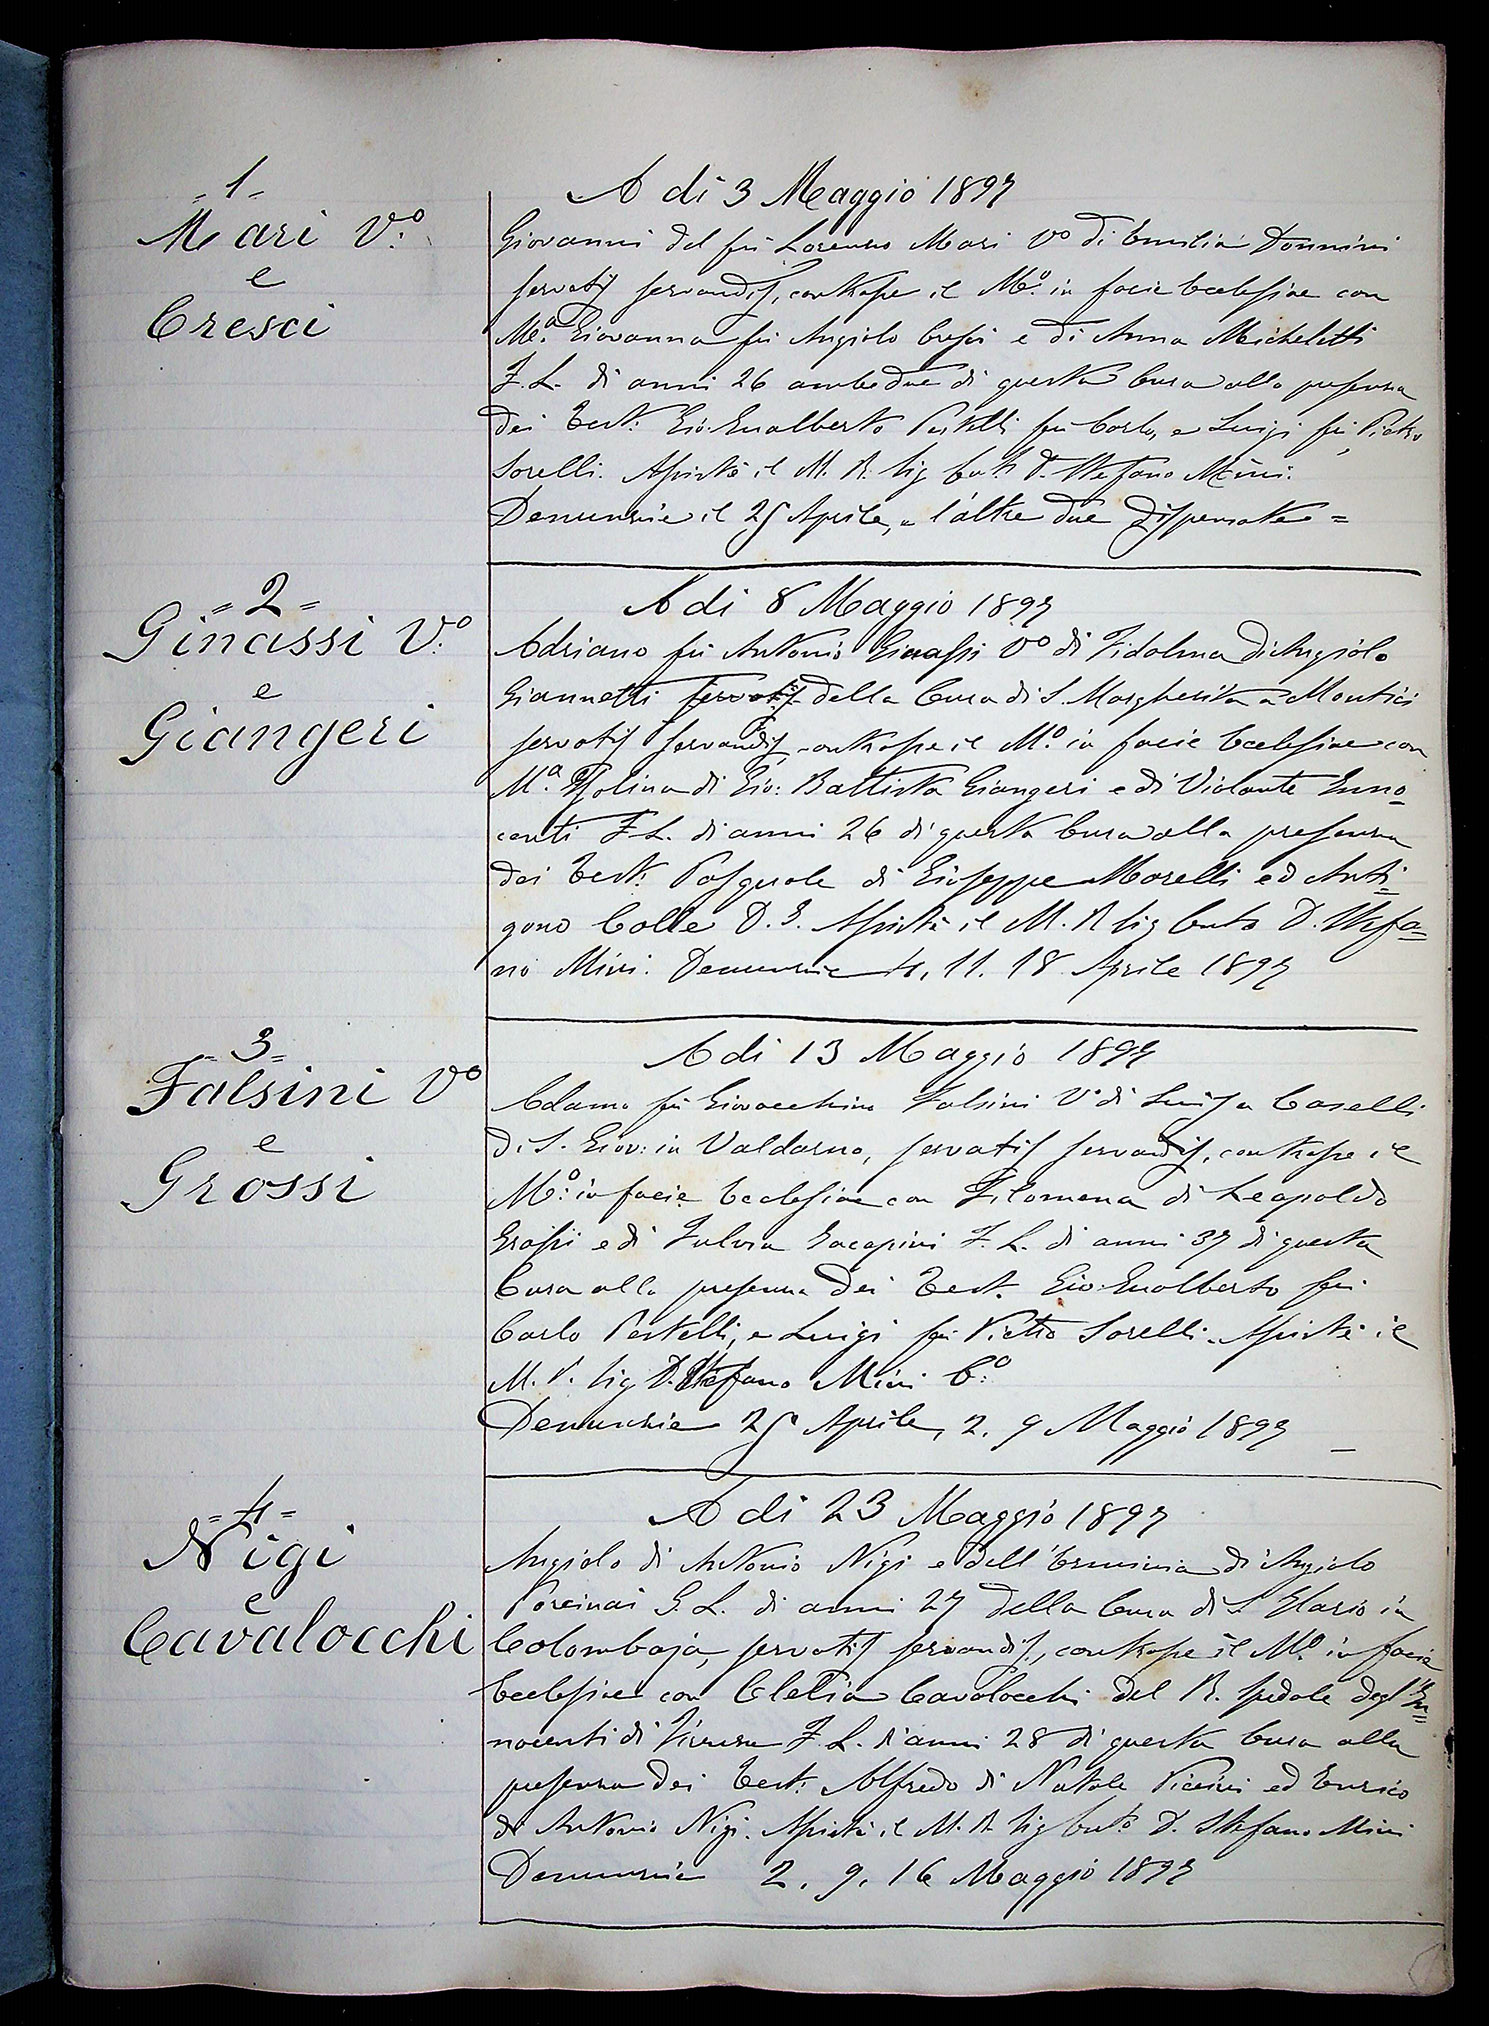 = 1 =
Mari V.º
e
Cresci
A di 3 Maggio 1897
Giovanni del fu Lorenzo Mari Vº di Emilia Donnini
servatis servandis, contrasse il Mº. in facie Ecclesiae con
Mª. Giovanna fu Angiolo Cresci e di Anna Micheletti
F. L. di anni 26 ambedue di questa Cura alla presenza
dei Test: Gio: Gualberto Pestelli fu Carlo, e Luigi fu Pietro
Sorelli. Assistè il M. R. Sig Curº D. Stefano Mini.
Denunzie il 25 Aprile, e l'altre due dispensate =
= 2 =
Ginassi V.º
e
Giangeri
A di 8 Maggio 1897
Adriano fu Antonio Ginassi Vº di Fidalma di Angiolo
Giannetti servatis della Cura di S. Margherita a Montici
servatis servandis contrasse il Mº. in facie Ecclesiae con
Mª. Isolina di Gio: Battista Giangeri e di Violante Inno=
centi F. L. di anni 26 di questa Cura alla presenza
dei Test: Pasquale di Giuseppe Morelli ed Anti=
gono Colle D. S. Assistè il M. R Sig Curto D. Stefa=
no Mini. Denunzie 4, 11. 18 Aprile 1897
= 3 =
Falsini Vº
e
Grossi
A di 13 Maggio 1897
Adamo fu Giovacchino Falsini Vº di Luisa Caselli
di S. Giov: in Valdarno, servatis servandis, contrasse il
Mº: in facie Ecclesiae con Filomena di Leopoldo
Grossi e di Fulvia Iacopini F. L. di anni 37 di questa
Cura alla presenza dei Test. Gio: Gualberto fu
Carlo Pestelli, e Luigi fu Pietro Sorelli. Assistè il
M. R. Sig D. Stefano Mini C.º
Denunzie 25 Aprile, 2. 9 Maggio 1897 _
= 4 =
Nigi
e
Cavalocchi
A di 23 Maggio 1897
Angiolo di Antonio Nigi e dell'Erminia di Angiolo
Porcinai G. L. di anni 27 della Cura di S. Ilario in
Colombaja, servatis servandis, contrasse il Mº. in facie
Ecclesiae con Cletia Cavalocchi del R. Spedale degl'In=
nocenti di Firenze F. L. di anni 28 di questa Cura alla
presenza dei Test: Alfredo di Natale Piccini ed Enrico
di Antonio Nigi. Assistè il M. R Sig Curtº D. Stefano Mini
Denunzie 2. 9. 16 Maggio 1897